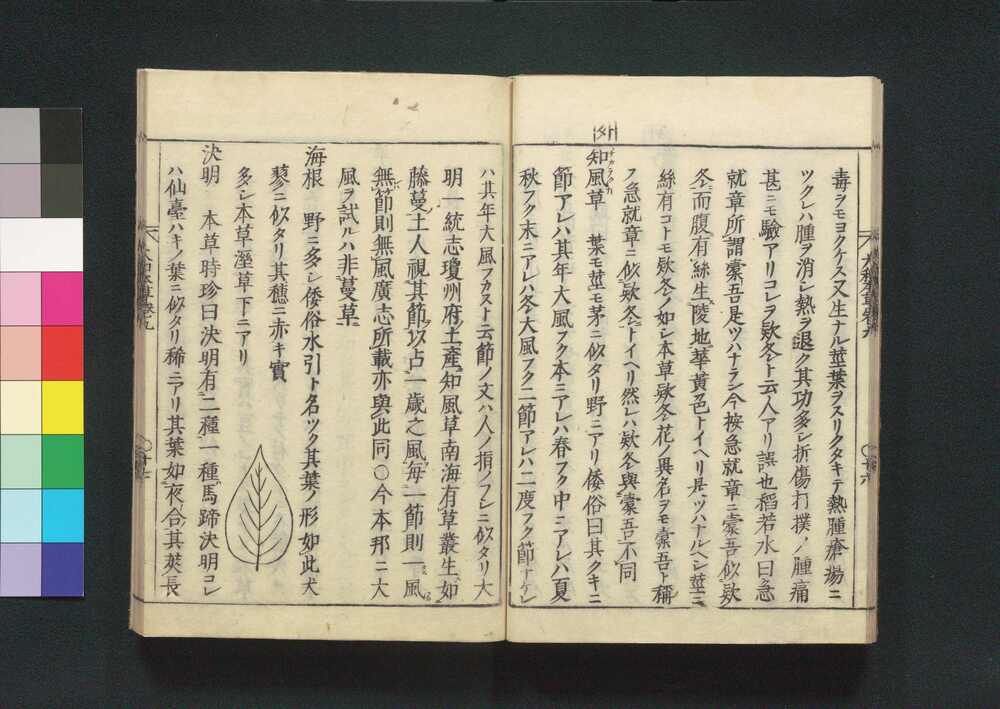 毒ヲモヨクケス又生ナル莖葉ヲスリタタキテ熱腫瘡瘍ニ
ツクレハ腫ヲ消シ熱ヲ退ク其功多シ折傷打撲ノ腫痛
甚ニモ驗アリコレヲ欵冬ト云人アリ誤也稻若水曰急
就章所謂橐吾是ツハナラン今按急就章ニ橐吾似欵
冬而腹有絲生陵地華黄色トイヘリ是ツハナルヘシ莖ニ
絲有コトモ欵冬ノ如シ本草欵冬花ノ異名ヲモ橐吾ト稱
ス急就章ニ似欵冬トイヘリ然レハ欵冬與橐吾不同
外
知風草 葉モ莖モ茅ニ似タリ野ニアリ倭俗曰其クキニ
節アレハ其年大風フク本ニアレハ春フク中ニアレハ夏
秋フク末ニアレハ冬大風フク二節アレハ二度フク節ナケレ
ハ其年大風フカスト云節ノ文ハ人ノ指ノフシニ似タリ大
明一統志瓊州府土産知風草南海有草叢生如
藤蔓土人視其節以占一歳之風毎一節則一風
無節則無風廣志所載亦與此同○今本邦ニ大
風ヲ試ルハ非蔓草
海根 野ニ多シ倭俗水引ト名ツク其葉ノ形如此犬
蓼ニ似タリ其穂ニ赤キ實
多シ本草溼草下ニアリ
決明 本草時珍曰決明有二種一種馬蹄決明コレ
ハ仙臺ハキノ葉ニ似タリ稀ニアリ其葉如夜合其莢長